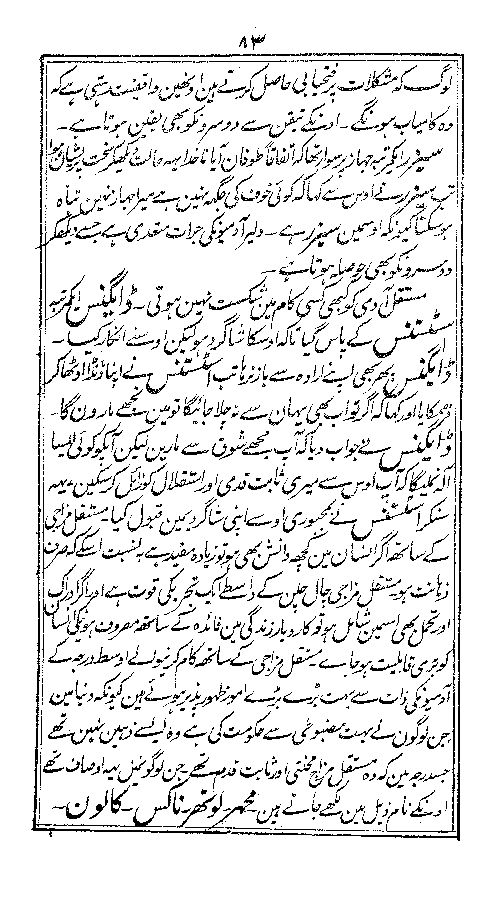 ۸۳
لوگ کہ مشکلات پر فتحیابی حاصل کرتے ہین اونھین واقفیت رہتی ہے کہ
وہ کامیاب ہونگے ۔ اونکے تیقن سے دوسرونکو بھی یقین ہوتا ہے ۔
سیزر ایکمرتبہ جہاز پر سوار تھا کہ اتفاقاً طوفان آیا ناخدا یہہ حالت دیکھکر سخت پریشان ہوا
تب سیزر نے اوس سے کہا کہ کوئی خوف کی جگہہ نہین ہے میرا جہاز نہین تباہ
ہوسکتا کیونکہ اوسمین سیزر ہے ۔ دلیر آدمیونکی جرات متعدی ہے جسے دیکھکر
دوسرونکو بھی حوصلہ ہوتا ہے ۔
مستقل آدمی کو کبھی کسی کام مین شکست نہین ہوتی ۔ ڈایگنس ایکمرتبہ
سٹنس کے پاس گیا تاکہ اوسکا شاگرد ہو لیکن اوسنے انکار کیا ۔
ڈایگنس پھر بھی اپنے ارادہ سے باز نرہا تب سٹنس نے اپنا ڈنڈا اوٹھا کر
دھمکایا اور کہا کہ اگر تو اب بھی یہان سے نہ چلا جائیگا تو مین تجھے مارون گا ۔
ڈایگنس نے جواب دیا کہ آپ مجھے شوق سے مارین لیکن آپکو کوئی ایسا
آلہ نملیگا کہ آپ اوس سے میری ثابت قدمی اور استقلال کو زائل کرسکین یہہ
سنکر سٹنس نے بمجبوری اوسے اپنی شاگردی مین قبول کیا ۔ مستقل مزاجی
کے ساتھہ اگر انسان مین کچھہ دانش بھی ہو تو زیادہ مفید ہے بہ نسبت اسکے کہ صرف
ذہانت ہو مستقل مزاجی چال چلن کے واسطے ایک تحریکی قوت ہے اور اگر ادراک
اور تحمل بھی اسمین شامل ہو تو کاروبار زندگی مین فائدہ کے ساتھہ مصروف ہونیکی انسان
کو بڑی قابلیت ہوجاے ۔ مستقل مزاجی کے ساتھہ کام کرنیوالے اوسط درجہ کے
آدمیونکی ذات سے بہت بڑے بڑے امور ظہور پذیر ہوئے ہین کیونکہ دنیا مین
جن لوگون نے بہت مضبوطی سے حکومت کی ہے وہ ایسے ذہین نہین تھے
جسدرجہ مین کہ وہ مستقل مزاج محنتی اور ثابت قدم تھے جن لوگونمین یہہ اوصاف تھے
اونکے نام ذیل مین لکھے جاتے ہین ۔ محمد لوتھر ناکس ۔ کالون ۔